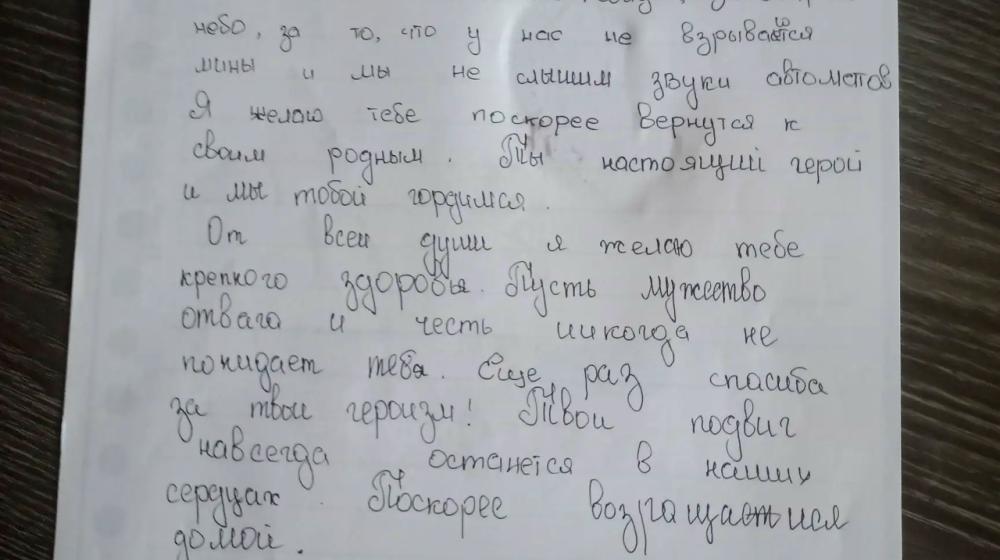 небо, за то, что у нас не взрываются
мины и мы не слышим звуки автометов
Я желаю тебе поскорее вернутся к
своим родным. Ты настоящий герой
и мы тобой гордимся.
От всеи души я желаю тебе
крепкого здоровья. Пусть мужество
отвага и честь никогда не
покидает тебя. Еще раз спасиба
за твои героизм! Твои подвиг
навсегда останется в наших
сердцах. Поскорее возгращаися
домой.